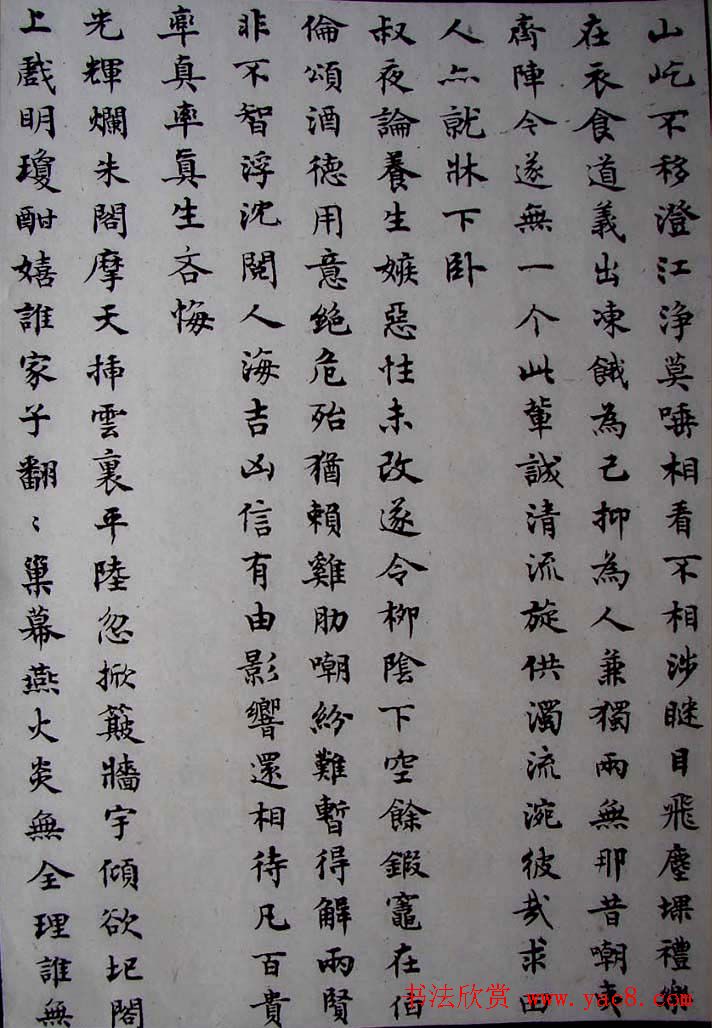 山屹不移澄江淨莫唾相看不相涉瞇目飛塵堁禮樂
在衣食道義出凍餓為己抑為人兼獨兩無那昔嘲夷
齊陣今遂無一个此輩誠清流旋供濁流涴彼哉求田
人亦就牀下卧
叔夜論養生嫉惡性未改遂令柳陰下空餘鍛竈在伯
倫頌酒德用意絕危殆猶賴雞肋嘲紛難暫得解兩賢
非不智浮沈閱人海吉凶信有由影響還相待凡百貴
率真率真生吝悔
光輝爛朱閣摩天揷雲裏平陸忽掀簸牆宇傾欲圮閣
上戲明瓊酣嬉誰家子翻〻巢幕燕火炎無全理誰無
书法欣赏 www.yac8.com